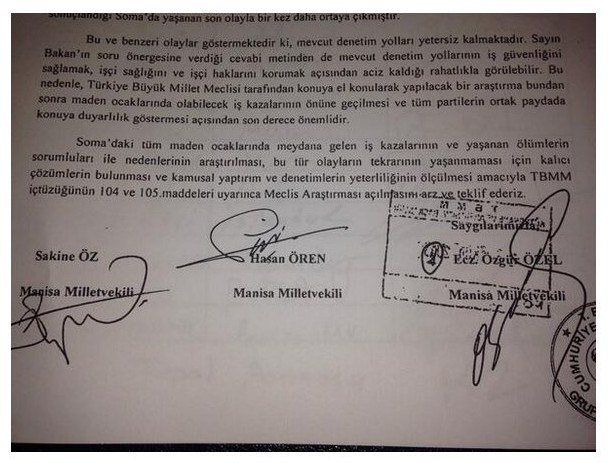 sonuçlandığı Soma'da yaşanan son olayla bir kez daha ortaya çıkmıştır.
Bu ve benzeri olaylar göstermektedir ki, mevcut denetim yolları yetersiz kalmaktadır. Sayın
Bakan'ın soru önergesine verdiği cevabi metinden de mevcut denetim yollarının iş güvenliğini
sağlamak, işçi sağlığını ve işçi haklarını korumak açısından aciz kaldığı rahatlıkla görülebilir. Bu
nedenle, Türkiye Büyük Millet Meclisi tarafından konuya el konularak yapılacak bir araştırma bundan
sonra maden ocaklarında olabilecek iş kazalarının önüne geçilmesi ve tüm partilerin ortak paydada
konuya duyarlılık göstermesi açısından son derece önemlidir.
Soma'daki tüm maden ocaklarında meydana gelen iş kazalarının ve yaşanan ölümlerin
sorumluları ile nedenlerinin araştırılması, bu tür olayların tekrarının yaşanmaması için kalıcı
çözümlerin bulunması ve kamusal yaptırım ve denetimlerin yeterliliğinin ölçülmesi amacıyla TBMM
içtüzüğünün 104 ve 105.maddeleri uyarınca Meclis Araştırması açılmasını arz ve teklif ederiz.
Saygılarımızla
Sakine ÖZ Hasan ÖREN Ecz. Özgür ÖZEL
Manisa Milletvekili Manisa Milletvekili Manisa Milletvekili
CUMHURİYE
GRUP